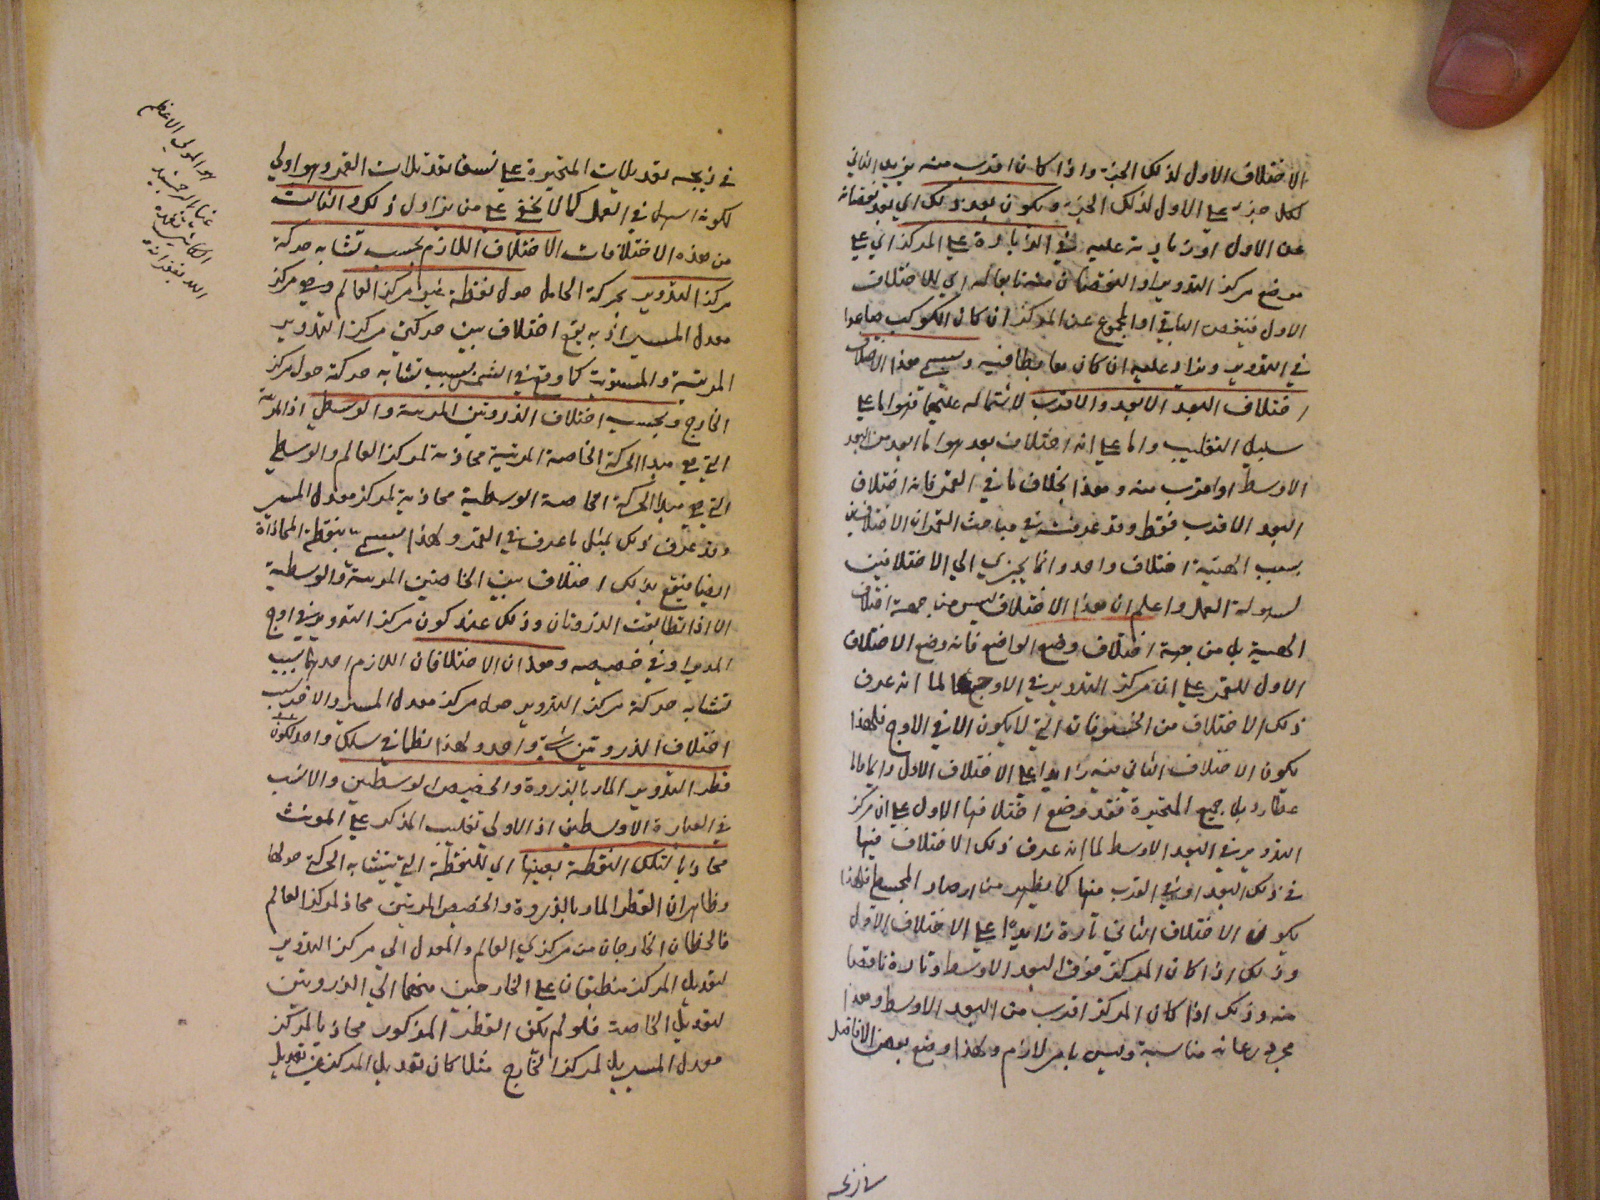 الاختلاف الاول لذلك الجزء واذا كان اقرب منه يزيد الثاني
لكل جزء على الاول لذلك الجزء ويكون بعد ذلك اي بعد نقصانه
عن الاول او زيادته عليه في الزيادة على المركز اي على
موضع مركز التدوير او النقصان منه تابعا له اي للاختلاف
الاول فينقص الباقي او المجموع عن المركز ان كان الكوكب صاعدا
في التدوير ويزاد عليه ان كان هابطا فيه ويسمى هذا الاختلاف
اختلاف البعد الابعد والاقرب لاشتماله عليهما فهو اما على
سبيل التغليب واما على انه اختلاف بعد هو اما ابعد من البعد
الاوسط او اقرب منه وهذا بخلاف ما في القمر فانه اختلاف
البعد الاقرب فقط وقد عرفت في مباحث القمر ان الاختلافين
بسبب الهيئة اختلاف واحد وانما يجزى الى الاختلافين
لسهولة العمل واعلم ان هذا الاختلاف ليس من جهة اختلاف
الهيئة بل من جهة اختلاف وضع الواضع فانه وضع الاختلاف
الاول للقمر على ان مركز التدوير في الاوج لما انه عرف
ذلك الاختلاف من الخسوفات التي لا يكون الا في الاوج فلهذا
يكون الاختلاف الثاني فيه زايدا على الاختلاف الاول دايما واما
عطارد بل جميع المتحيرة فقد وضع اختلافها الاول على ان مركز
التدوير في البعد الاوسط لما انه عرف ذلك الاختلاف فيها
في ذلك البعد او في القرب منها كما يظهر من ارصاد المجسطي فلهذا
يكون الاختلاف الثاني تارة زايدا على الاختلاف الاول
وذلك اذا كان المركز فوق البعد الاوسط وتارة ناقصا
منه وذلك اذا كان المركز اقرب من البعد الاوسط وهذا
مجرد رعاية مناسبة وليس بامر لازم ولهذا وضع بعض الافاضل
في زيجه
في زيجه تعديلات المتحيرة على نسق تعديلات القمر وهو اولى
لكونه اسهل في العمل كما لا يخفى على من يزاول ذلك والثالث
من هذه الاختلافات الاختلاف اللازم بحسب تشابه حركة
مركز التدوير بحركة الحامل حول نقطة غير مركز العالم وهي مركز
معدل المسير اذ به يقع اختلاف بين حركتي مركز التدوير
المرئية والمستوية كما وقع في الشمس بسبب تشابه حركته حول مركز
الخارج وبحسب اختلاف الذروتين المرئية والوسطى اذ المرئية
التي هي مبدا الحركة الخاصة المرئية محاذية لمركز العالم والوسطى
التي هي مبدا الحركة الخاصة الوسطية محاذية لمركز معدل المسير
وقد عرف ذلك بمثل ما عرف في القمر ولهذا يسمى بنقطة المحاذاة
ايضا فيقع بذلك اختلاف بين الخاصتين المرئية والوسطية
الا اذا تطابقت الذروتان وذلك عند كون مركز التدوير في اوج
المدير او في حضيضه وهذان الاختلافان اللازم احدهما بسبب
تشابه حركة مركز التدوير حول مركز معدل المسير والاخر بسبب
اختلاف الذروتين شيء واحد ولهذا نظما في سلك واحد لكون
قطر التدوير المار بالذروة والحضيض الوسطين والانسب
في العبارة الاوسطين اذ الاولى تغليب المذكر على المونث
محاذيا لتلك النقطة بعينها اي للنقطة التي يتشابه الحركة حولها
وظاهر ان القطر المار بالذروة والحضيض المرئيين محاذ لمركز العالم
فالخطان الخارجان من مركزي العالم والمعدل الى مركز التدوير
لتعديل المركز منطبقان على الخارجين منهما الى الذروتين
لتعديل الخاصة فلو لم يكن القطر المذكور محاذيا لمركز
معدل المسير بل لمركز الخارج مثلا كان تعديل المركز غير تعديل
هو المولى الاعظم
غياث الدين جمشيد
الكاشي تغمده
الله بغفرانه